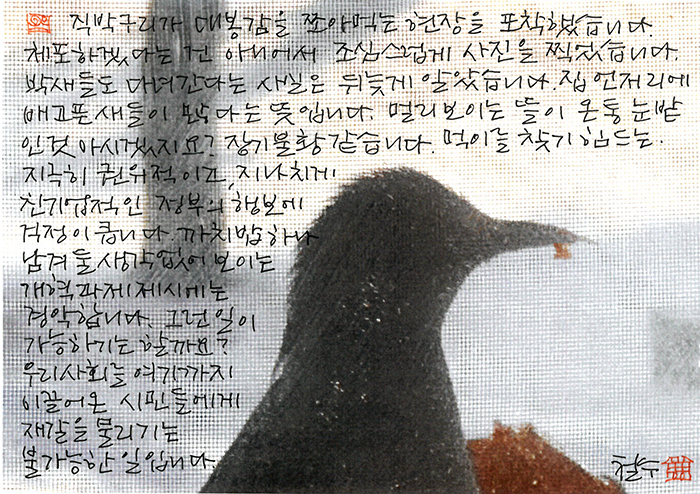 직박구리가 대봉감을 쪼아먹는 현장을 포착했습니다.
체포하겠다는 건 아니어서 조심스럽게 사진을 찍었습니다.
박새들도 다녀간다는 사실은 뒤늦게 알았습니다. 집 언저리에
배고픈 새들이 많다는 뜻입니다. 멀리 보이는 뜰이 온통 눈밭
인 것 아시겠지요? 장기불황 같습니다. 먹이를 찾기 힘드는.
지극히 권위적이고, 지나치게
친기업적인 정부의 행보에
걱정이 큽니다. 까치밥 하나
남겨둘 생각 없어 보이는
개혁과제 제시에는
경악합니다. 그런 일이
가능하기는 할까요?
우리 사회를 여기까지
이끌어 온 시민들에게
재갈을 물리기는
불가능한 일입니다.
철수